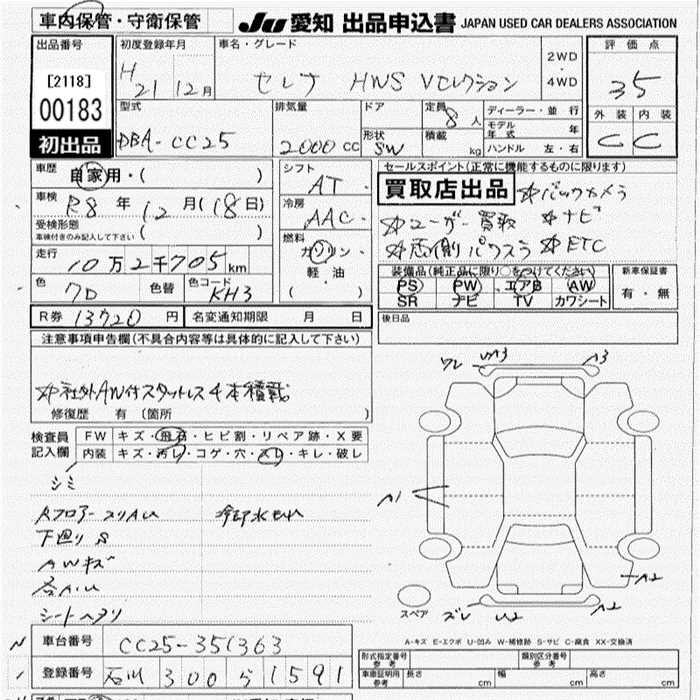 車内保管・守衛保管
JU 愛知 出品申込書 JAPAN USED CAR DEALERS ASSOCIATION
出品番号
[2118]
00183
初出品
初度登録年月
H 21 12月
車名・グレード
セレナ HWS Vセレクション
2WD
・
4WD
評価点
3.5
外装 内装
C C
型式
DBA-CC25
排気量
2000cc
ドア
形状
SW
定員
8人
積載
kg
ディーラー・並行
モデル年式 年
ハンドル 左・右
車歴
自家用・( )
車検
R8年12月(18日)
受検形態
車検付きのみ記入して下さい ( )
走行
10万2千705km
色
色替
色コード
KH3
R券 13720円
名変通知期限 月 日
シフト
AT
冷房
AAC
燃料
ガソリン・
軽油・
( )
セールスポイント(正常に機能するものに限ります)
買取店出品
☆バックカメラ
☆ユーザー買取 ☆ナビ
☆両側パワスラ ☆ETC
装備品(純正品に限り○をつけてください)
PS PW エアB AW
SR ナビ TV カワシート
新車保証書
有・無
後日品
注意事項申告欄(不具合内容等は具体的に記入して下さい)
☆社外AW付スタットレス4本積載
修復歴 有 (箇所 )
検査員
記入欄
FW キズ・飛石・ヒビ割・リペア跡・X要
内装 キズ・汚れ・コゲ・穴・スレ・キレ・破レ
シミ
下廻りS
AWキズ
シートヘタリ
ワレ
A3
A1
A2
スペア
ズレ
U2
A2
A-キズ E-エクボ U-凹み W-補修跡 S-サビ C-腐食 XX-交換済
車台番号
CC25-351363
登録番号
石川 300 ら 1591
形式指定番号
参考
類別区分番号
参考
車庫証明用
参考
長さ cm 幅 cm 高さ cm